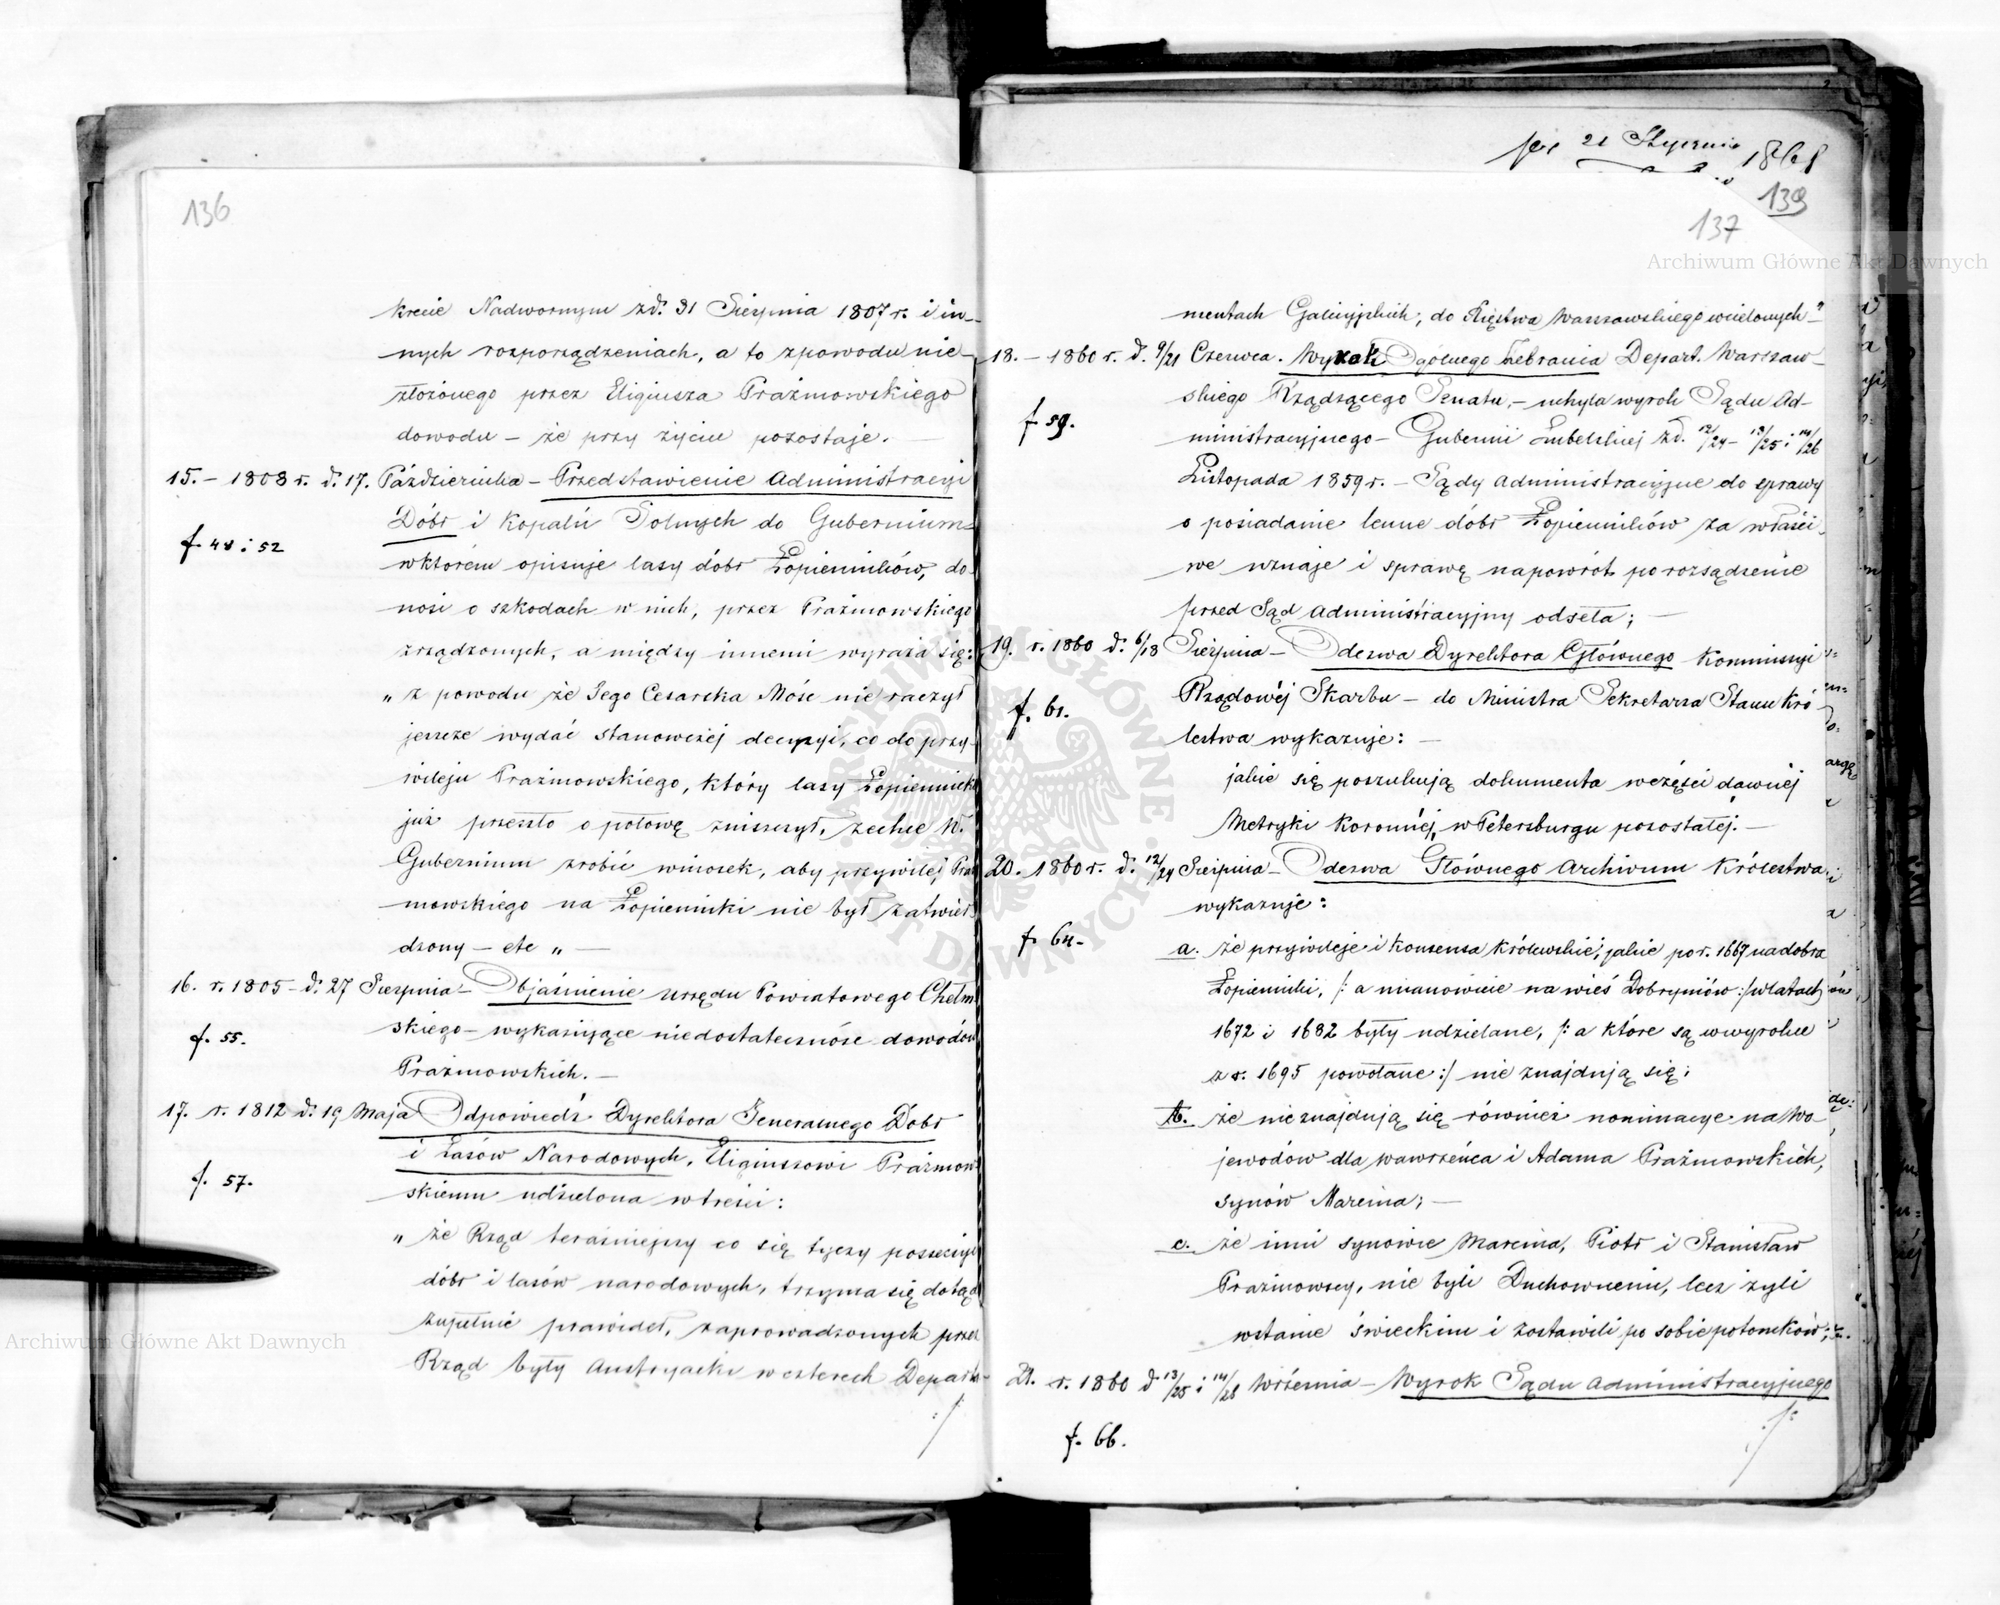 136
krecie Nadwornym zd. 31 Sierpnia 1807 r. i in-
nych rozporządzeniach, a to zpowodu nie-
złożónego przez Eligiusza Prażmowskiego
dowodu – że przy życiu pozostaje. —
15. – 1808 r. d. 17. Października – Przedstawienie Administracyi
Dóbr i Kopalń Solnych do Gubernium –
f. 48 i 52
wktórém opisuje lasy dóbr Łopienników, do-
nosi o szkodach w nich, przez Prażmowskiego
zrządzonych, a między innemi wyraża się:
„z powodu że Jego Cesarska Mość nie raczył
jeszcze wydać stanowczéj decyzyi, co do przy-
wileju Prażmowskiego, który lasy Łopiennick
już przeszło o połowę zniszczył, zechce W.
Gubernium zrobić wniosek, aby przywiléj Praż
mowskiego na Łopienniki nie był zatwier
dzony – etc „ —
16. r. 1805 – d. 27 Sierpnia – Objaśnienie Urzędu Powiatowego Chełm
skiego – wykazujące niedostateczność dowodów
f. 55.
Prażmowskich. —
17. r. 1812 d. 19 Maja Odpowiedź Dyrektora Jeneralnego Dóbr
i Lasów Narodowych, Eligiuszowi Prażmow
f. 57.
skiemu udzielona w treści:
„że Rząd teraźniejszy co się tyczy possessyi
dóbr i lasów narodowych, trzyma się dotąd
zupełnie prawideł, zaprowadzonych przez
Rząd były Austryacki w czterech Departa-
pr. 21 Stycznia 1861
139
137
mentach Galicyjskich, do Księstwa Warszawskiego wcielonych"
18. – 1860 r. d. 9/21 Czerwca. Wyrok Ogólnego Zebrania Depart. Warszaw-
skiego Rządzącego Senatu, – uchyla wyrok Sądu Ad-
f. 59.
ministracyjnego – Gubernii Lubelskiéj zd. 12/24 – 13/25 i 14/26
Listopada 1859 r. – Sądy Administracyjne do sprawy
o posiadanie lenne dóbr Łopienników za właści-
we uznaje i sprawę napowrót po rozsądzenie
przed Sąd Administracyjny odseła; —
19. r. 1860 d. 6/18 Sierpnia – Odezwa Dyrektora Głównego Kommissyi
Rządowéj Skarbu – do Ministra Sekretarza Stanu Kró-
f. 61.
lestwa wykazuje: —
jakie się poszukują dokumenta wczęści dawnéj
Metryki Koronnéj, w Petersburgu pozostałéj. —
20. 1860 r. d. 12/24 Sierpnia – Odezwa Głównego Archiwum Królestwa
wykazuje:
f. 64.
a. że przywileje i Konsensa Królewskie, jakie po r. 1667 na dobra
Łopienniki, /: a mianowicie na wieś Dobryniów :/ w latach
1672 i 1682 były udzielane, /: a które są w wyroku
z r. 1695 powołane :/ nie znajdują się;
b. że nieznajdują się również nominacye na Wo-
jewodów dla Wawrzeńca i Adama Prażmowskich,
synów Marcina; —
c. że inni synowie Marcina, Piotr i Stanisław
Prażmowscy, nie byli Duchownemi, lecz żyli
wstanie świeckim i zostawili po sobie potomków;
21. r. 1860 d. 13/25 i 14/26 Września – Wyrok Sądu Administracyjnego
f. 66.
Archiwum Główne Akt Dawnych
Archiwum Główne Akt Dawnych
ARCHIWUM GŁÓWNE AKT DAWNYCH